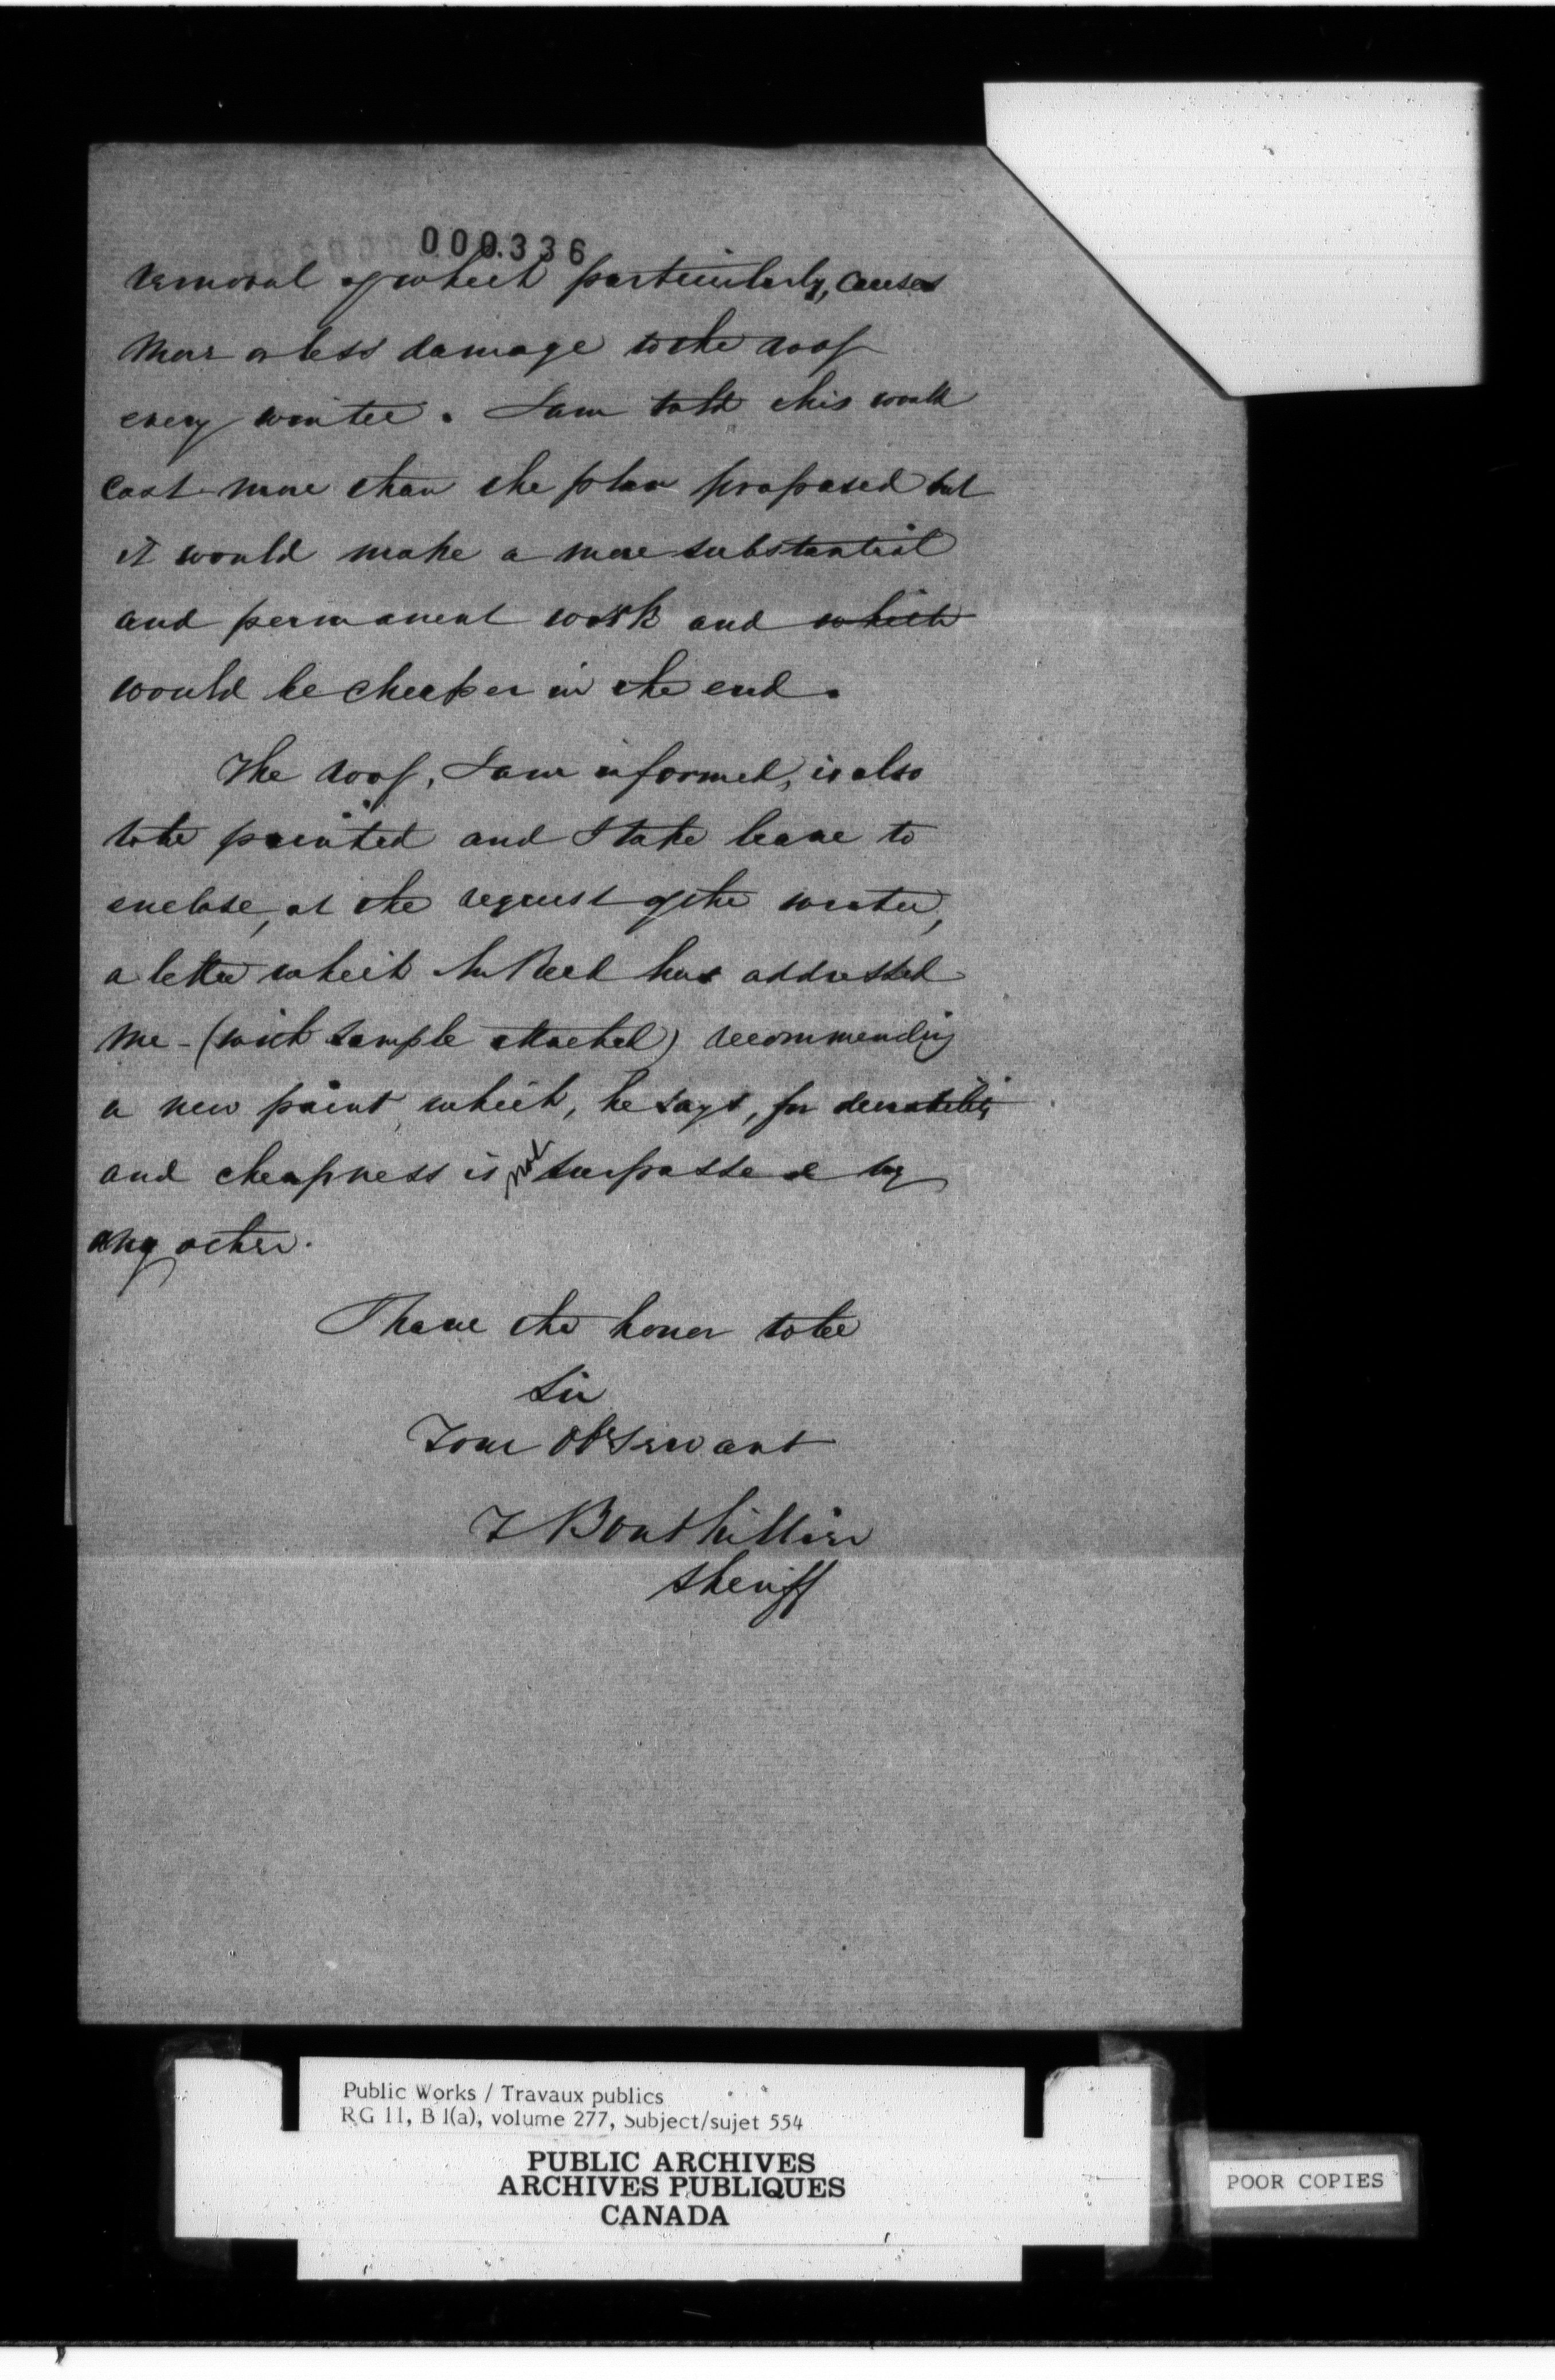 000336
removal of which particularly, causes
more or less damage to the roof
every winter. I am told this would
cost more than the plan proposed but
it would make a more substantial
and permanent work and which
would be cheaper in the end.
The roof, I am informed, is also
to be painted and I take leave to
enclose, at the request of the writer,
a letter which Mr Reed has addressed
me - (with sample attached) recommending
a new paint, which, he says, for durability
and cheapness is not surpassed by
any other.
I have the honor to be
Sir
Your Obt Servant
T Bouthillier
Sheriff
Public Works / Travaux publics
RG 11, B 1(a), volume 277, Subject/sujet 554
PUBLIC ARCHIVES
ARCHIVES PUBLIQUES
CANADA
POOR COPIES